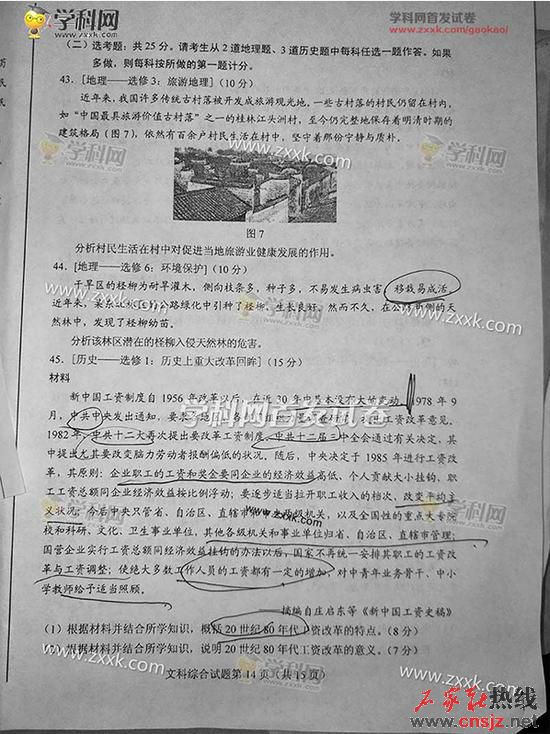 学科网
学科网首发试卷
www.zxxk.com/gaokao/
（二）选考题：共25分。请考生从2道地理题、3道历史题中每科任选一题作答。如果
多做，则每科按所做的第一题计分。
43. [地理——选修3：旅游地理]（10分）
近年来，我国许多传统古村落被开发成旅游观光地，一些古村落的村民仍留在村内，
如“中国最具旅游价值古村落”之一的桂林江头洲村，至今仍完整地保存着明清时期的
建筑格局（图7），依然有百余户村民生活在村中，坚守着那份宁静与质朴。
学科网
www.zxxk.com
图7
分析村民生活在村中对促进当地旅游业健康发展的作用。
44. [地理——选修6：环境保护]（10分）
干旱区的柽柳为耐旱灌木，侧向枝条多，种子多，不易发生病虫害，移栽易成活。
近年来，公路绿化中引种了柽柳，生长良好。然而不久，在公路两侧的天
然林中，发现了柽柳幼苗。
分析该林区潜在的柽柳入侵天然林的危害。
45. [历史——选修1：历史上重大改革回眸]（15分）
材料
新中国工资制度自1956年改革以后，在近30年中基本没有大的变动。1978年9
学科网首发试卷
月，中共中央发出通知，要求工资改革意见。
1982年，中共十二大再次提出要改革工资制度，中共十二届三中全会通过有关决定，其
中提出尤其要改变脑力劳动者报酬偏低的状况。随后，中央决定于1985年进行工资改
革，其原则：企业职工的工资和奖金要同企业的经济效益高低、个人贡献大小挂钩，职
工工资总额同企业经济效益按比例浮动；要逐步适当拉开职工收入的档次，改变平均主
义状况；今后中央只管省、自治区、直辖市级机关，以及全国性的重点大专院
校和科研、文化、卫生事业单位，其他各级机关和事业单位归省、自治区、直辖市管理；
国营企业实行工资总额同经济效益挂钩的办法以后，国家不再统一安排其职工的工资改
革与工资调整；使绝大多数工作人员的工资都有一定的增加，对中青年业务骨干、中小
学教师给予适当照顾。
——摘编自庄启东等《新中国工资史稿》
（1）根据材料并结合所学知识，概括20世纪80年代工资改革的特点。（8分）
（2）根据材料并结合所学知识，说明20世纪80年代工资改革的意义。（7分）
文科综合试题第14页（共15页）
石家庄热线
www.cnsjz.net